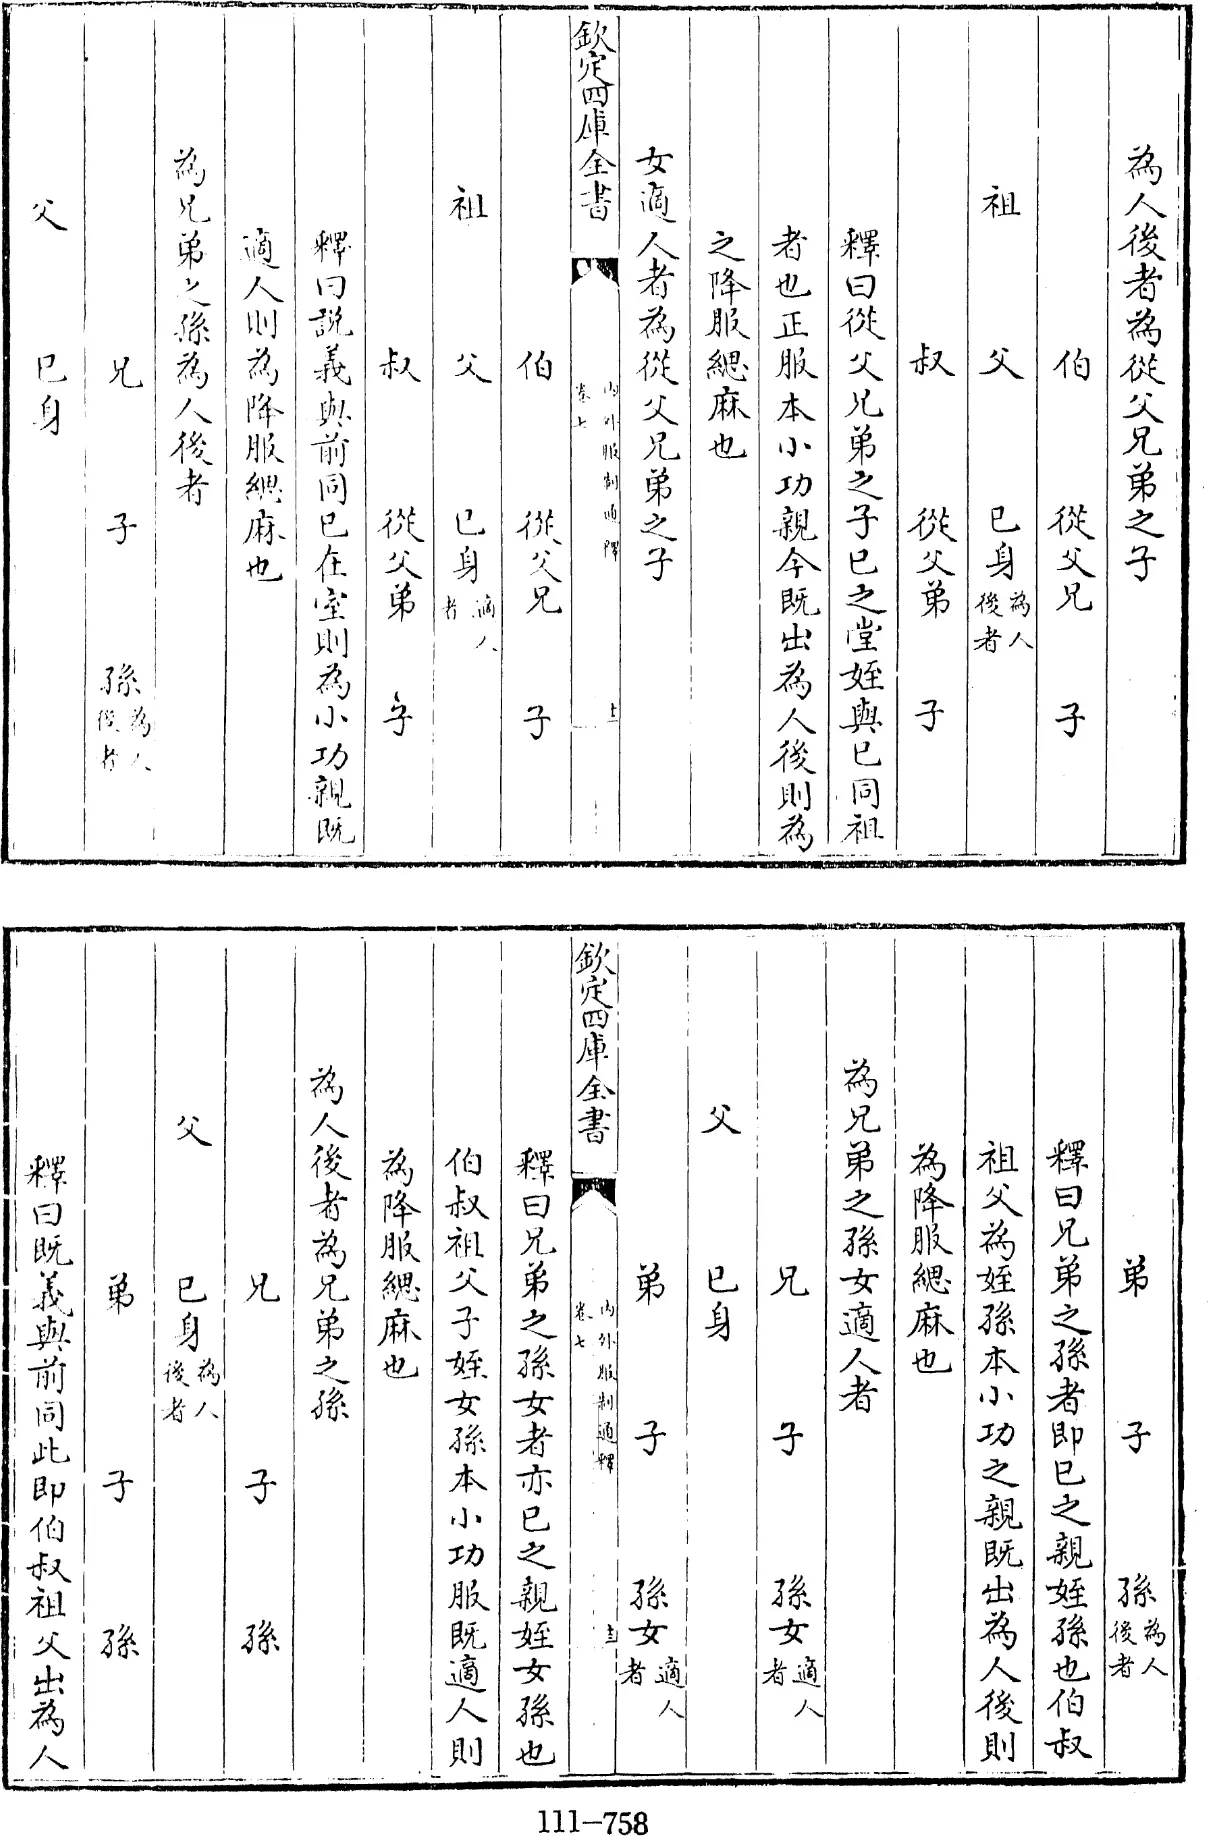 為人後者為從父兄弟之子
伯 從父兄 子
祖 父 己身為人後者
叔 從父弟 子
釋曰從父兄弟之子己之堂姪與己同祖
者也正服本小功親今既出為人後則為
之降服緦麻也
女適人者為從父兄弟之子
欽定四庫全書 內外服制通釋 卷七 十一
伯 從父兄 子
祖 父 己身適人者
叔 從父弟 子
釋曰説義與前同己在室則為小功親既
適人則為降服緦麻也
為兄弟之孫為人後者
兄 子 孫為人後者
父 己身
弟 子 孫為人後者
釋曰兄弟之孫者即己之親姪孫也伯叔
祖父為姪孫本小功之親既出為人後則
為降服緦麻也
為兄弟之孫女適人者
兄 子 孫女適人者
父 己身
弟 子 孫女適人者
欽定四庫全書 內外服制通釋 卷七 十二
釋曰兄弟之孫女者亦己之親姪女孫也
伯叔祖父子姪女孫本小功服既適人則
為降服緦麻也
為人後者為兄弟之孫
兄 子 孫
父 己身為人後者
弟 子 孫
釋曰既義與前同此即伯叔祖父出為人
111-758